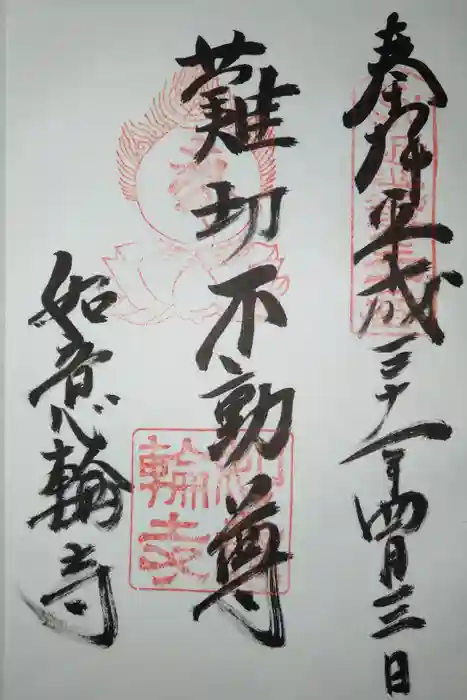 奉拝平成三十一年四月三日
難切不動尊
如意輪寺